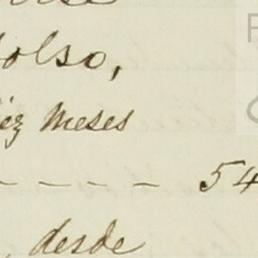 olso,
ez meses
- - - - 54
, desde